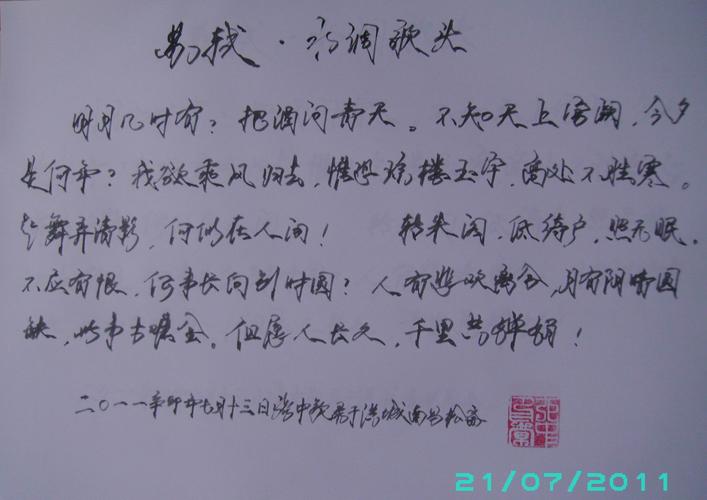 苏轼·水调歌头
明月几时有？把酒问青天。不知天上宫阙，今夕
是何年？我欲乘风归去，惟恐琼楼玉宇，高处不胜寒。
起舞弄清影，何似在人间！ 转朱阁，低绮户，照无眠。
不应有恨，何事长向别时圆？人有悲欢离合，月有阴晴圆
缺，此事古难全。但愿人长久，千里共婵娟！
二〇一一辛卯年七月十三日 中 于洪城南昌松斋
21/07/2011